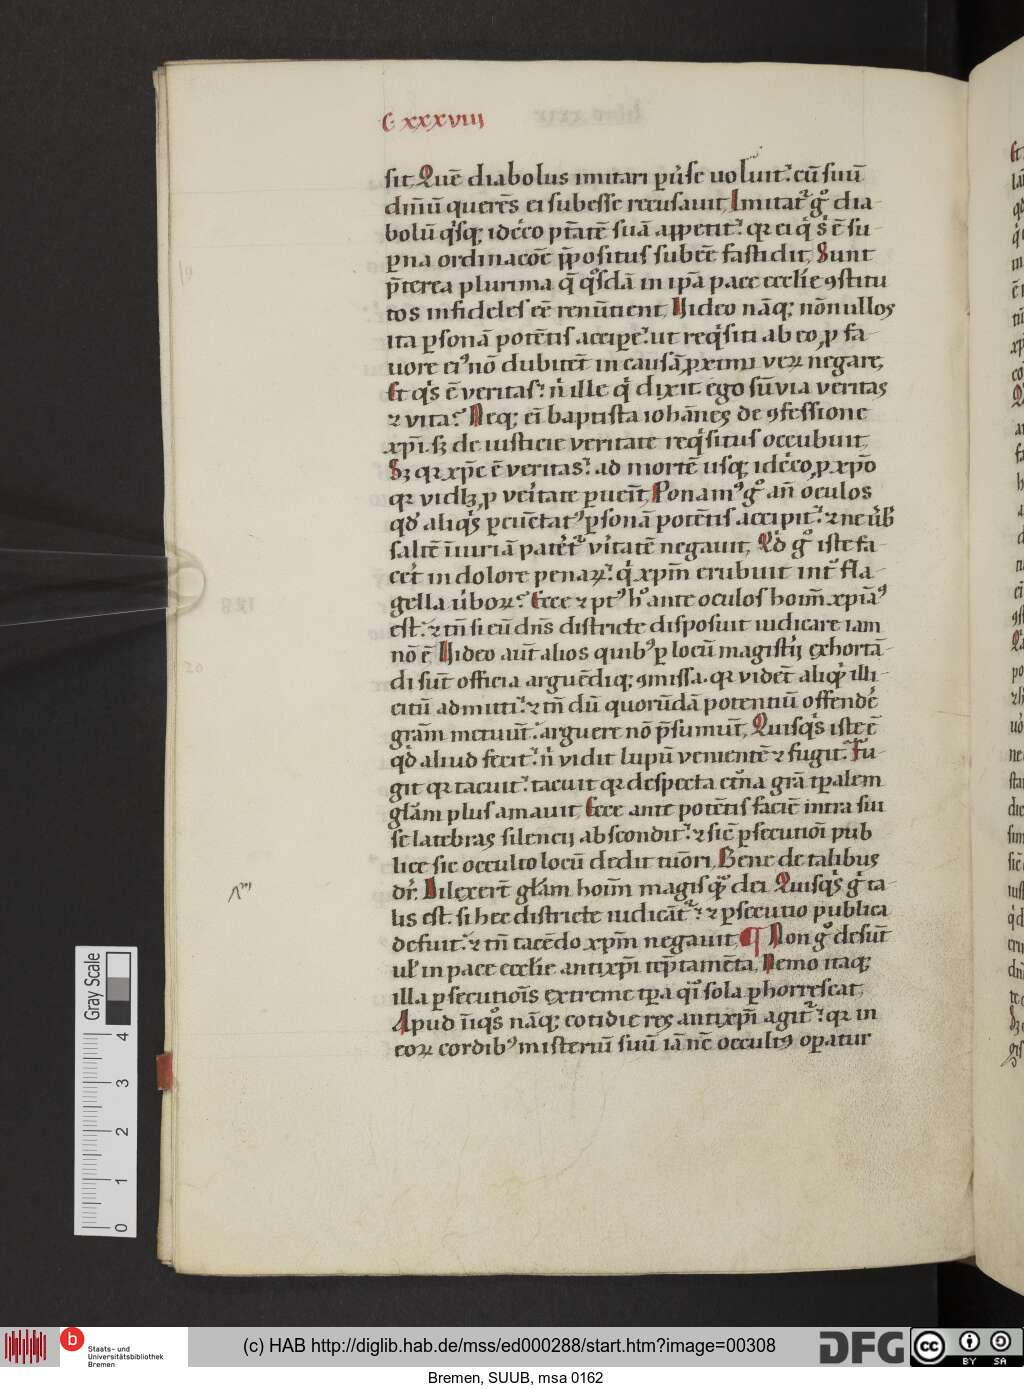 C xxxviij
sit Quē diabolus imitari puͥse uoluit. cū suū
dn̄iū querēs ei subesse recusauit, Imitat᷑ gͦ dia-
bolū qͥsqͥꝫ idcͥco ptātē suā appetit. qꝛ ei qͥ sͥ ē su-
ꝑna ordinacōe p̄positus subēē fastidit, Sunt
p̄terea plurima q̄ qͦsdā in ip̄a pace ecclīe ꝯstitu
tos infideles eē̄ renūtient, Uideo nāqꝫ nōnullos
ita ꝑsonā potētis accipeͤ. ut reqͥsiti ab eo, ꝓ fa-
uore eiꝰ nō dubitēt in causa ꝓximi veꝝ negare,
Et qͥs ē veritas. nͥ ille qͥ dixit. ego sū via veritas
⁊ vita. Neqꝫ eī baptista iohānes de ꝯfessione
xp̄i. sꝫ de iusticie veritate reqͥsitus occubuit,
Sꝫ qꝛ xp̄c ē veritas. ad mortē usqꝫ idcͥco, ꝓ xp̄o
qꝛ vidlꝫ, ꝓ veͥitate ꝑuēit, Ponamꝰ gͦ an̄ oculos
qd̓ aliqͥs ꝑcūctatꝰ ꝑsonā potētis accipit. ⁊ ne ūb̓
saltē īiuriā patet᷑ vͥitatē negauit, Qd̓ gͦ iste fa-
cet̓ in dolore penaꝝ. qͥ xpm̄ erubuit int̓ fla-
gella úboꝝ. Ecce ⁊ ptꝰ hͦ ante oculos hoīm xpiāꝰ
est. ⁊ tn̄ si eū dn̄s districte disposuit iudicare iam
nō ē Uideo aut̄ alios quibꝰ ꝑ locū magistij exhortā-
di sūt officia arguēdiqꝫ ꝯmissa. qꝛ vidēt aliqͥ illi-
citū admitti. ⁊ tn̄ dū quorūdā potentiū offendē
grām metuūt. arguere nō p̄sumūt, Quisqͥs iste ē
qd̓ aliud fecit. nͥ vidit lupū venientē ⁊ fugit. Fu-
git qꝛ tacuit. tacuit qꝛ despecta et̓na grā tp̄alem
glām plus amauit, Ecce ante potētis faciē intra sui
se latebras silencij abscondit. ⁊ sic ꝑsecutiōi pub
lice sic occulto locū dedit tiōri, Bene de talibus
dr̄. Dilexert̄ glām hoīm magis qͣ dei Quisqͥs gͥ ta-
lis est. si hec districte iudicāt᷑. ⁊ ꝑsecutio publica
defuit. ⁊ tn̄ tacēdo xpm̄ negauit, ¶ Non gͦ desūt
ul̓ in pace ecclīe antixp̄i tēptamēta, Nemo itaqꝫ
illa ꝑsecutiōis extreme tp̄a qͣi sola ꝑhorrescat,
Apud īiqͦs nāqꝫ cotidie res antixp̄i agit᷑. qꝛ in
eoꝝ cordibꝰ misteriū suū iā nc̄ occultꝰ oꝑatur
Gray Scale
4
3
2
1
0
Staats- und
Universitätsbibliothek
Bremen
(c) HAB http://diglib.hab.de/mss/ed000288/start.htm?image=00308
DFG
cc
BY SA
Bremen, SUUB, msa 0162